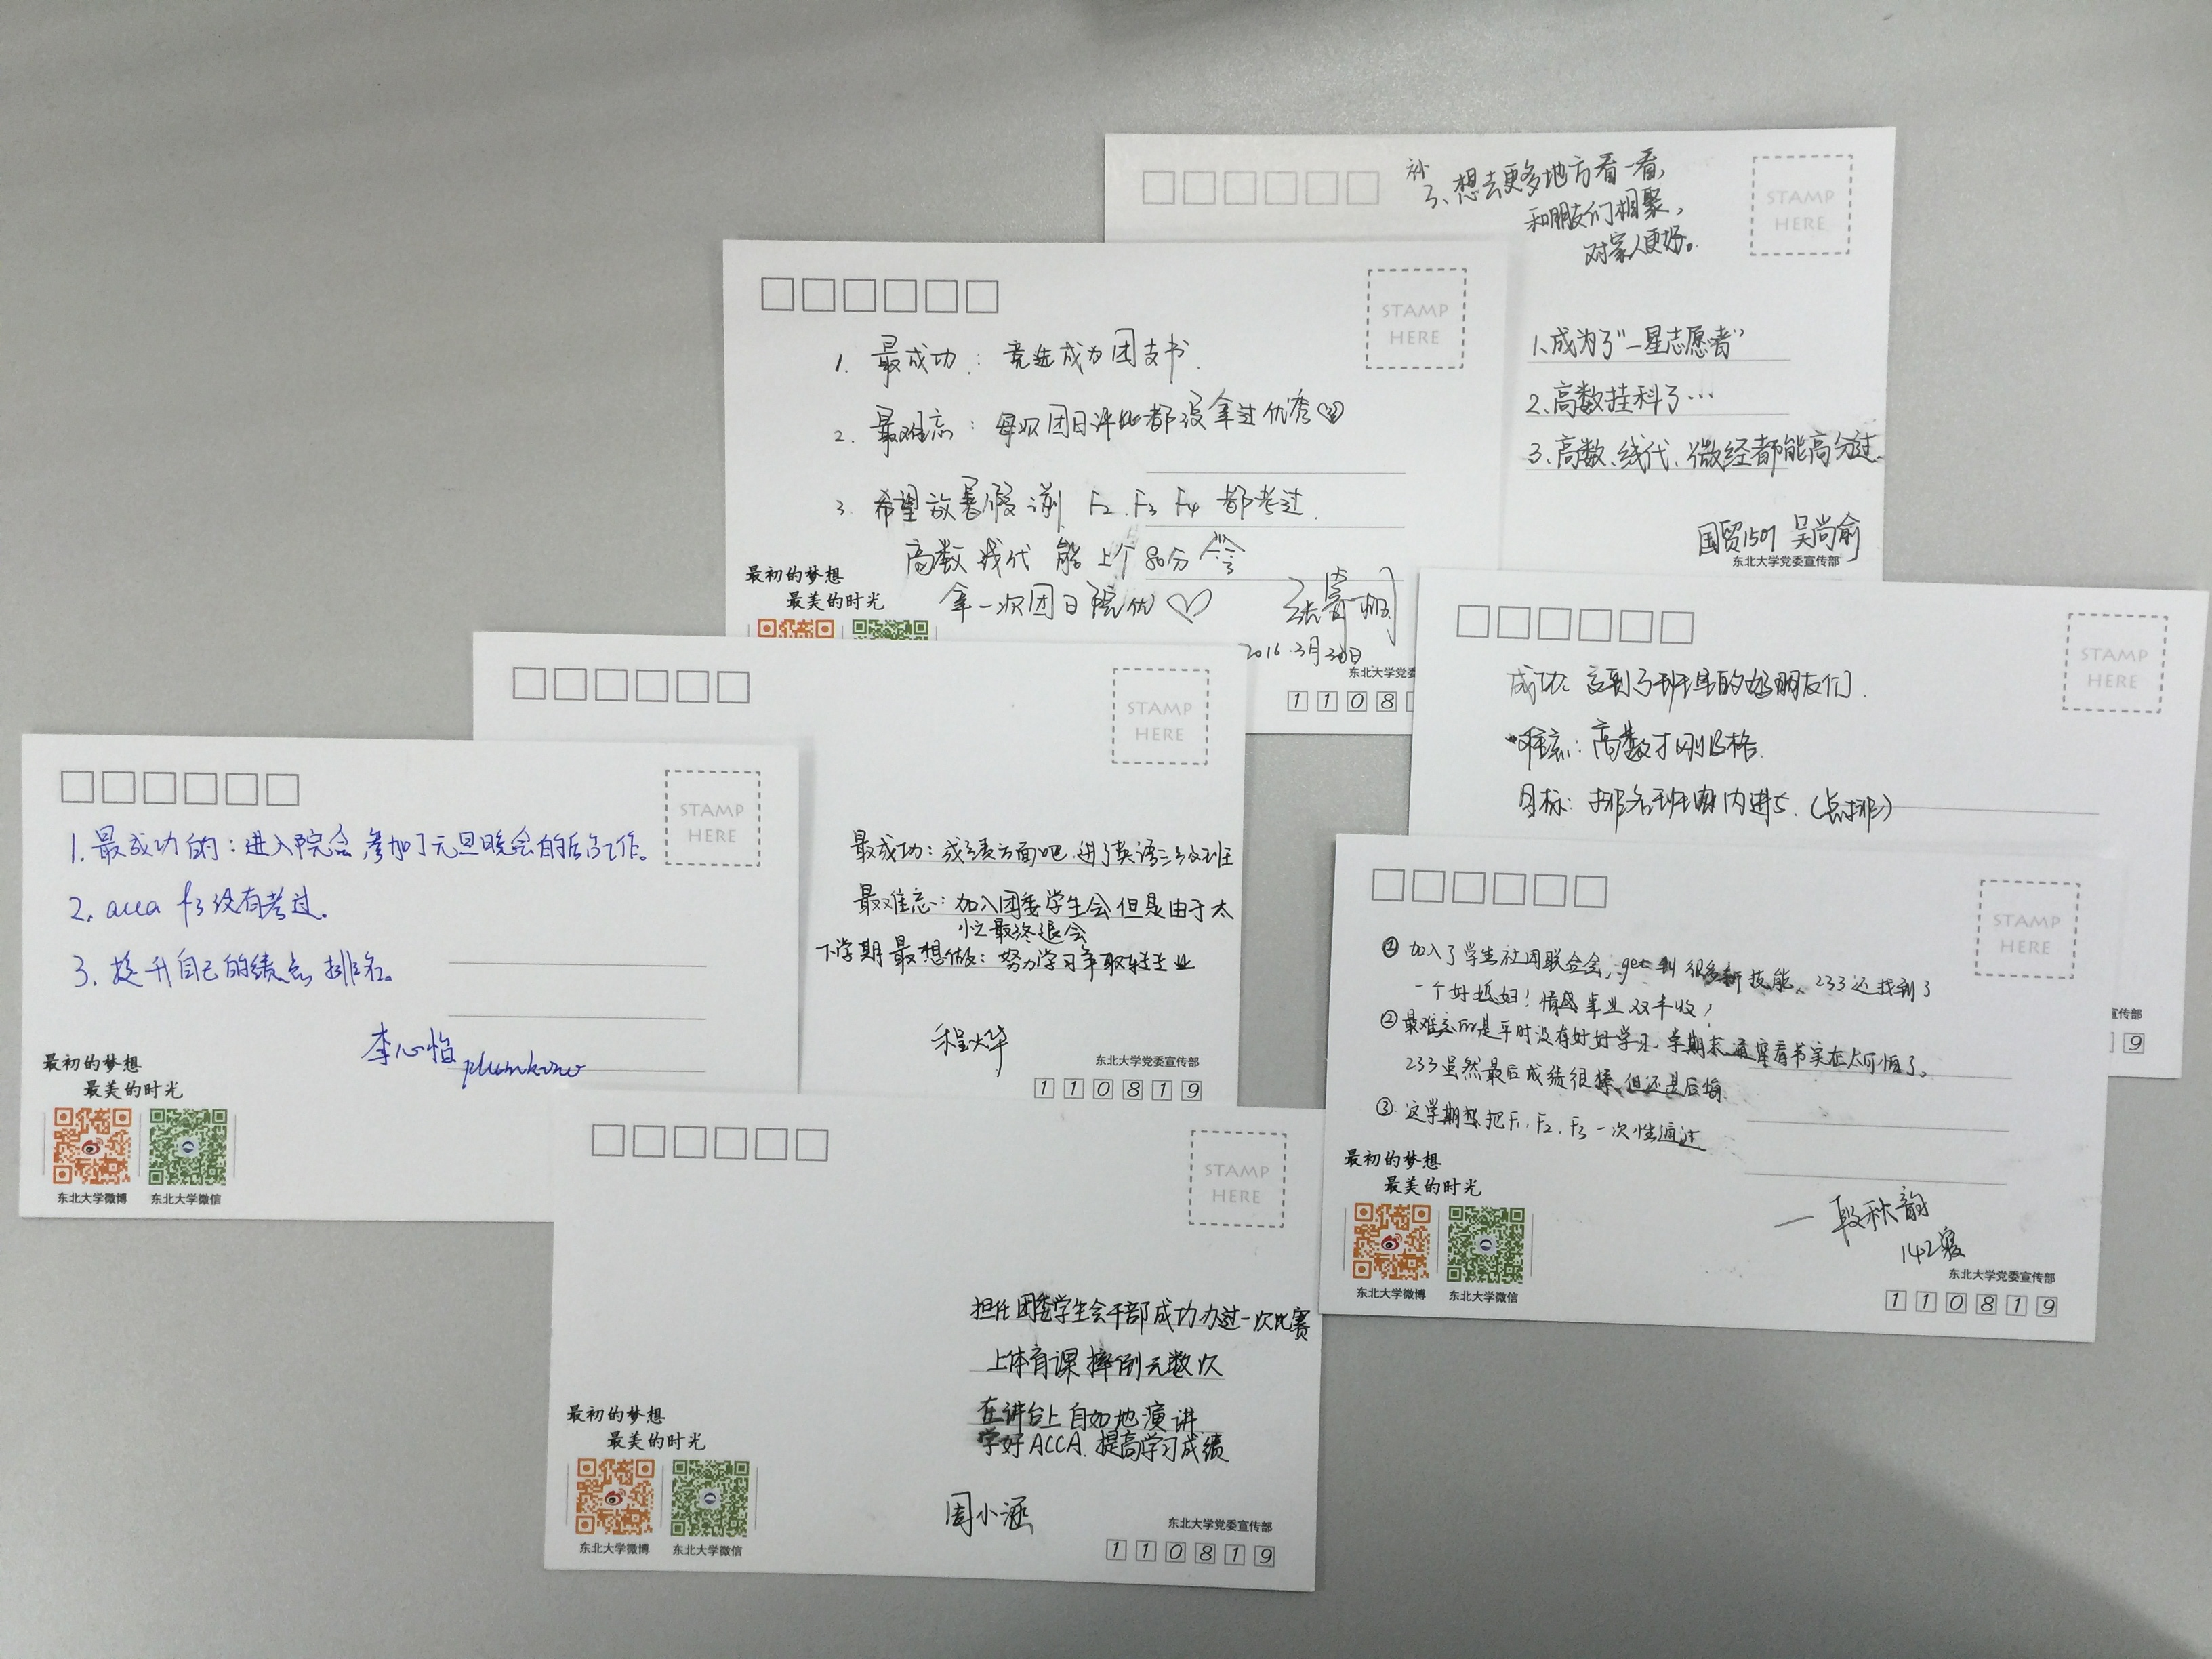 补
3、想去更多地方看一看,
和朋友们相聚,
对家人更好。
STAMP
HERE
1、成为了“一星志愿者”
2、高数挂科了…
3、高数、线代、微经都能高分过.
国贸1501 吴尚俞
东北大学党委宣传部
STAMP
HERE
1. 最成功: 竞选成为团支书.
2. 最难忘: 每次团日评比都没拿过优秀
3. 希望放暑假前 F2. F3 F4 都考过.
高数 线代 能上个80分
拿一次团日院优
2016.3月30日
最初的梦想
最美的时光
东北大学党委
1 1 0 8
STAMP
HERE
成功: 交到了班里的好朋友们.
难忘: 高数才刚及格.
目标: 排名班内进5.
宣传部
9
STAMP
HERE
最成功: 成绩方面吧.进了英语三级班
最难忘: 加入团委学生会但是由于太
忙最终退会
下学期最想做: 努力学习争取转专业
东北大学党委宣传部
1 1 0 8 1 9
STAMP
HERE
1. 最成功的: 进入院会,参加了元旦晚会的后台工作。
2. acca f3没有考过.
3. 提升自己的绩点排名。
李心怡
最初的梦想
最美的时光
东北大学微博 东北大学微信
STAMP
HERE
① 加入了学生社团联合会, get到很多新技能、233还找到了
一个好媳妇! 情感事业双丰收!
② 最难忘的是平时没有好好学习,学期末通宵看书实在太可怕了。
233虽然最后成绩很棒,但还是后悔
③. 这学期想把F1. F2. F3 一次性通过
最初的梦想
最美的时光
— 段秋韵
142寝
东北大学微博 东北大学微信
东北大学党委宣传部
1 1 0 8 1 9
STAMP
HERE
担任团委学生会干部成功办过一次比赛
上体育课摔倒无数次
在讲台上自如地演讲
学好ACCA. 提高学习成绩
周小涵
最初的梦想
最美的时光
东北大学微博 东北大学微信
东北大学党委宣传部
1 1 0 8 1 9